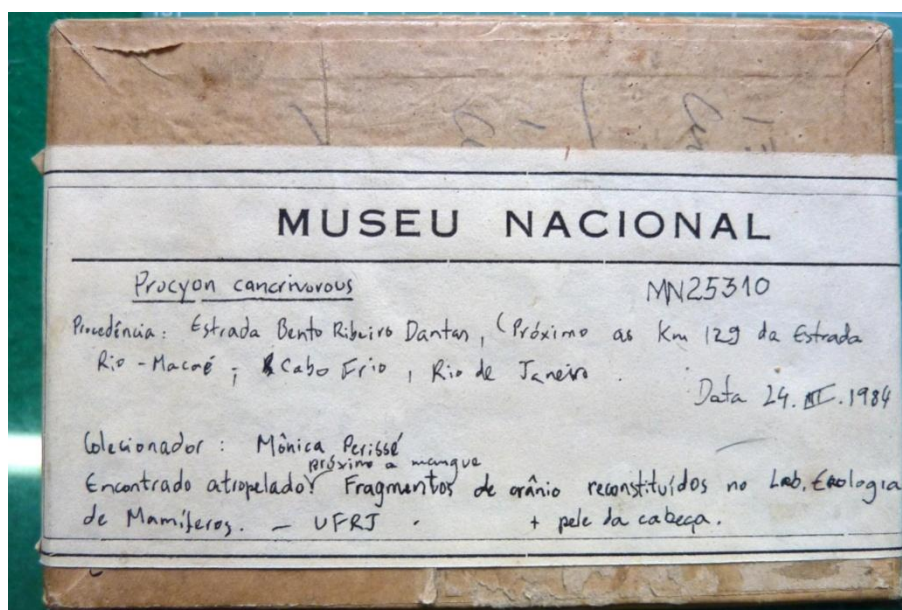 MUSEU NACIONAL
Procyon cancrivorous MN25310
Procedência: Estrada Bento Ribeiro Dantas, (Próximo ao Km 129 da Estrada
Rio-Macaé, Cabo Frio, Rio de Janeiro.
Data 24. III. 1984
Colecionador: Mônica Perissé
próximo a mangue
Encontrado atropelado. Fragmentos de crânio reconstituídos no Lab. Ecologia
de Mamíferos. - UFRJ. + pele da cabeça.